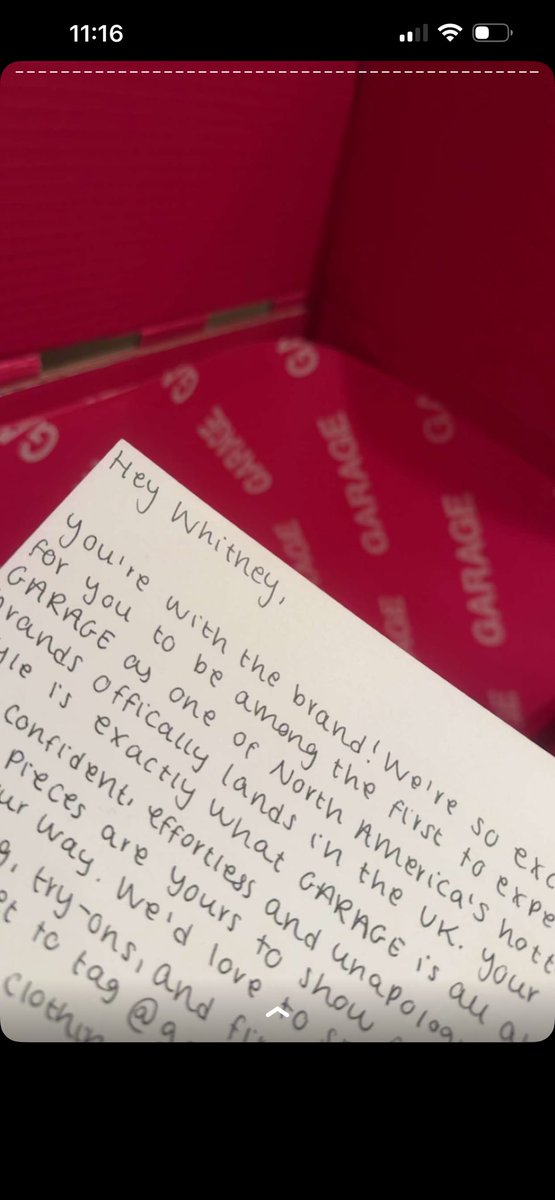 11:16
GARAGE
GARAGE
GARAGE
Hey Whitney,
you're with the brand! We're so exc
for you to be among the first to expe
GARAGE as one of North America's hott
brands offically lands in the UK. your
yle is exactly what GARAGE is all a
confident, effortless and unapolog
pieces are yours to show
ur way. We'd love to
g, try-ons, and fi
et to tag @g
clothin